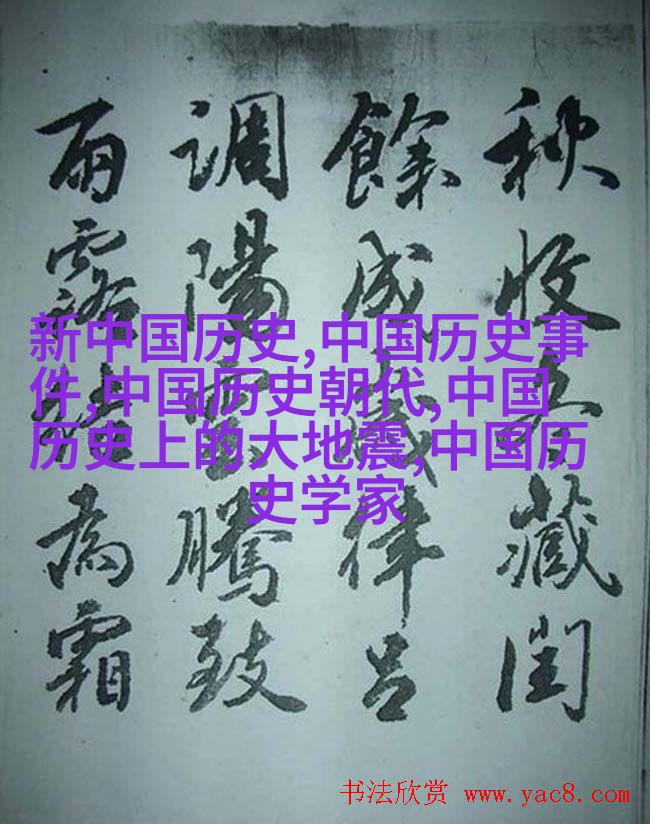 秋收冬藏閏
餘成歲律呂
調陽雲騰致
雨露結為霜
新中国历史,中国历史事
件,中国历史朝代,中国
历史上的大地震,中国历
史学家
书法欣赏 www.yac8.com